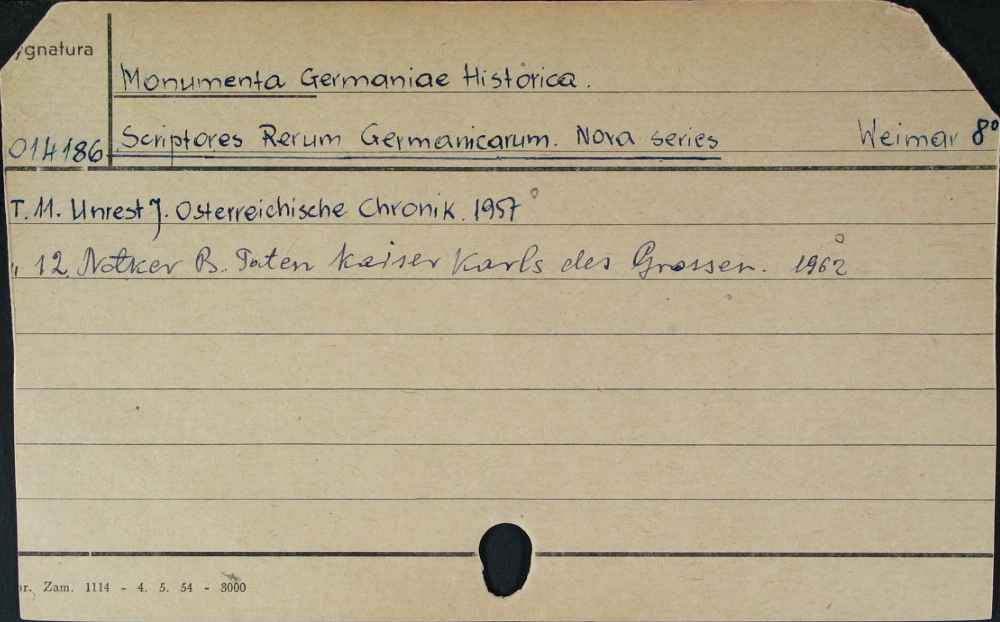 ygnatura
Monumenta Germaniae Historica.
014186 Scriptores Rerum Germanicarum. Nova series Weimar 8°
T. 11. Unrest J. Österreichische Chronik. 1957
„ 12. Notker B. Taten Kaiser Karls des Grossen. 1962
nr. Zam. 1114 - 4. 5. 54 - 3000